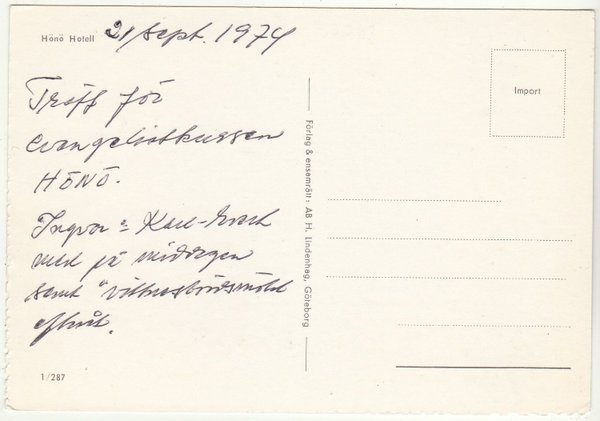 Hönö Hotell
21/sept. 1974
Träff för
evangelistkursen
HÖNÖ.
Ingvar o Karl-Erik
med på middagen
samt "vittnesbördsmötet
efteråt.
Import
Förlag & ensamrätt: AB H. Lindenhag, Göteborg
1/287